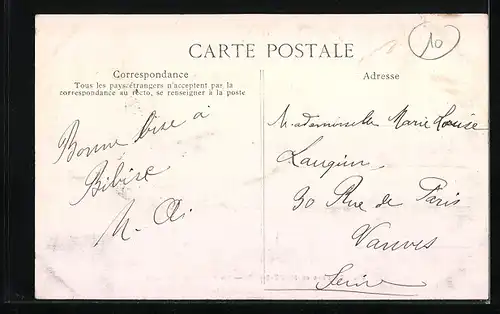 10
CARTE POSTALE
Correspondance
Tous les pays étrangers n'acceptent pas la
correspondance au recto, se renseigner à la poste
Adresse
Bonne bise à
Bibise
Mademoiselle Marie Louise
Laugier
30 Rue de Paris
Vanves
Seine